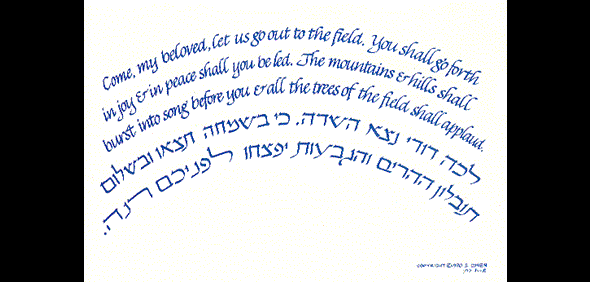 Come, my beloved, let us go out to the field. You shall go forth
in joy & in peace shall you be led. The mountains & hills shall
burst into song before you & all the trees of the field shall applaud.
לכה דודי נצא השדה. כי בשמחה תצאו ובשלום
תובלון ההרים והגבעות יפצחו לפניכם רנה.
COPYRIGHT